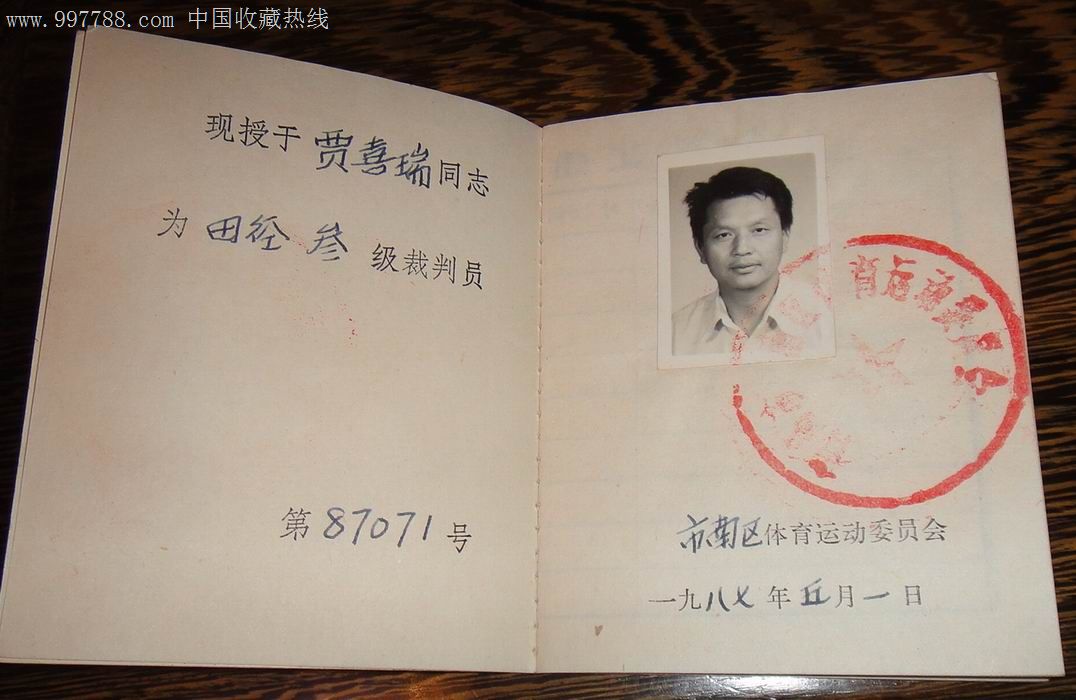 www.997788.com 中国收藏热线
现授于 贾喜瑞 同志
为 田径 叁 级裁判员
第 87071 号
市南区体育运动委员会
一九八七年五月一日